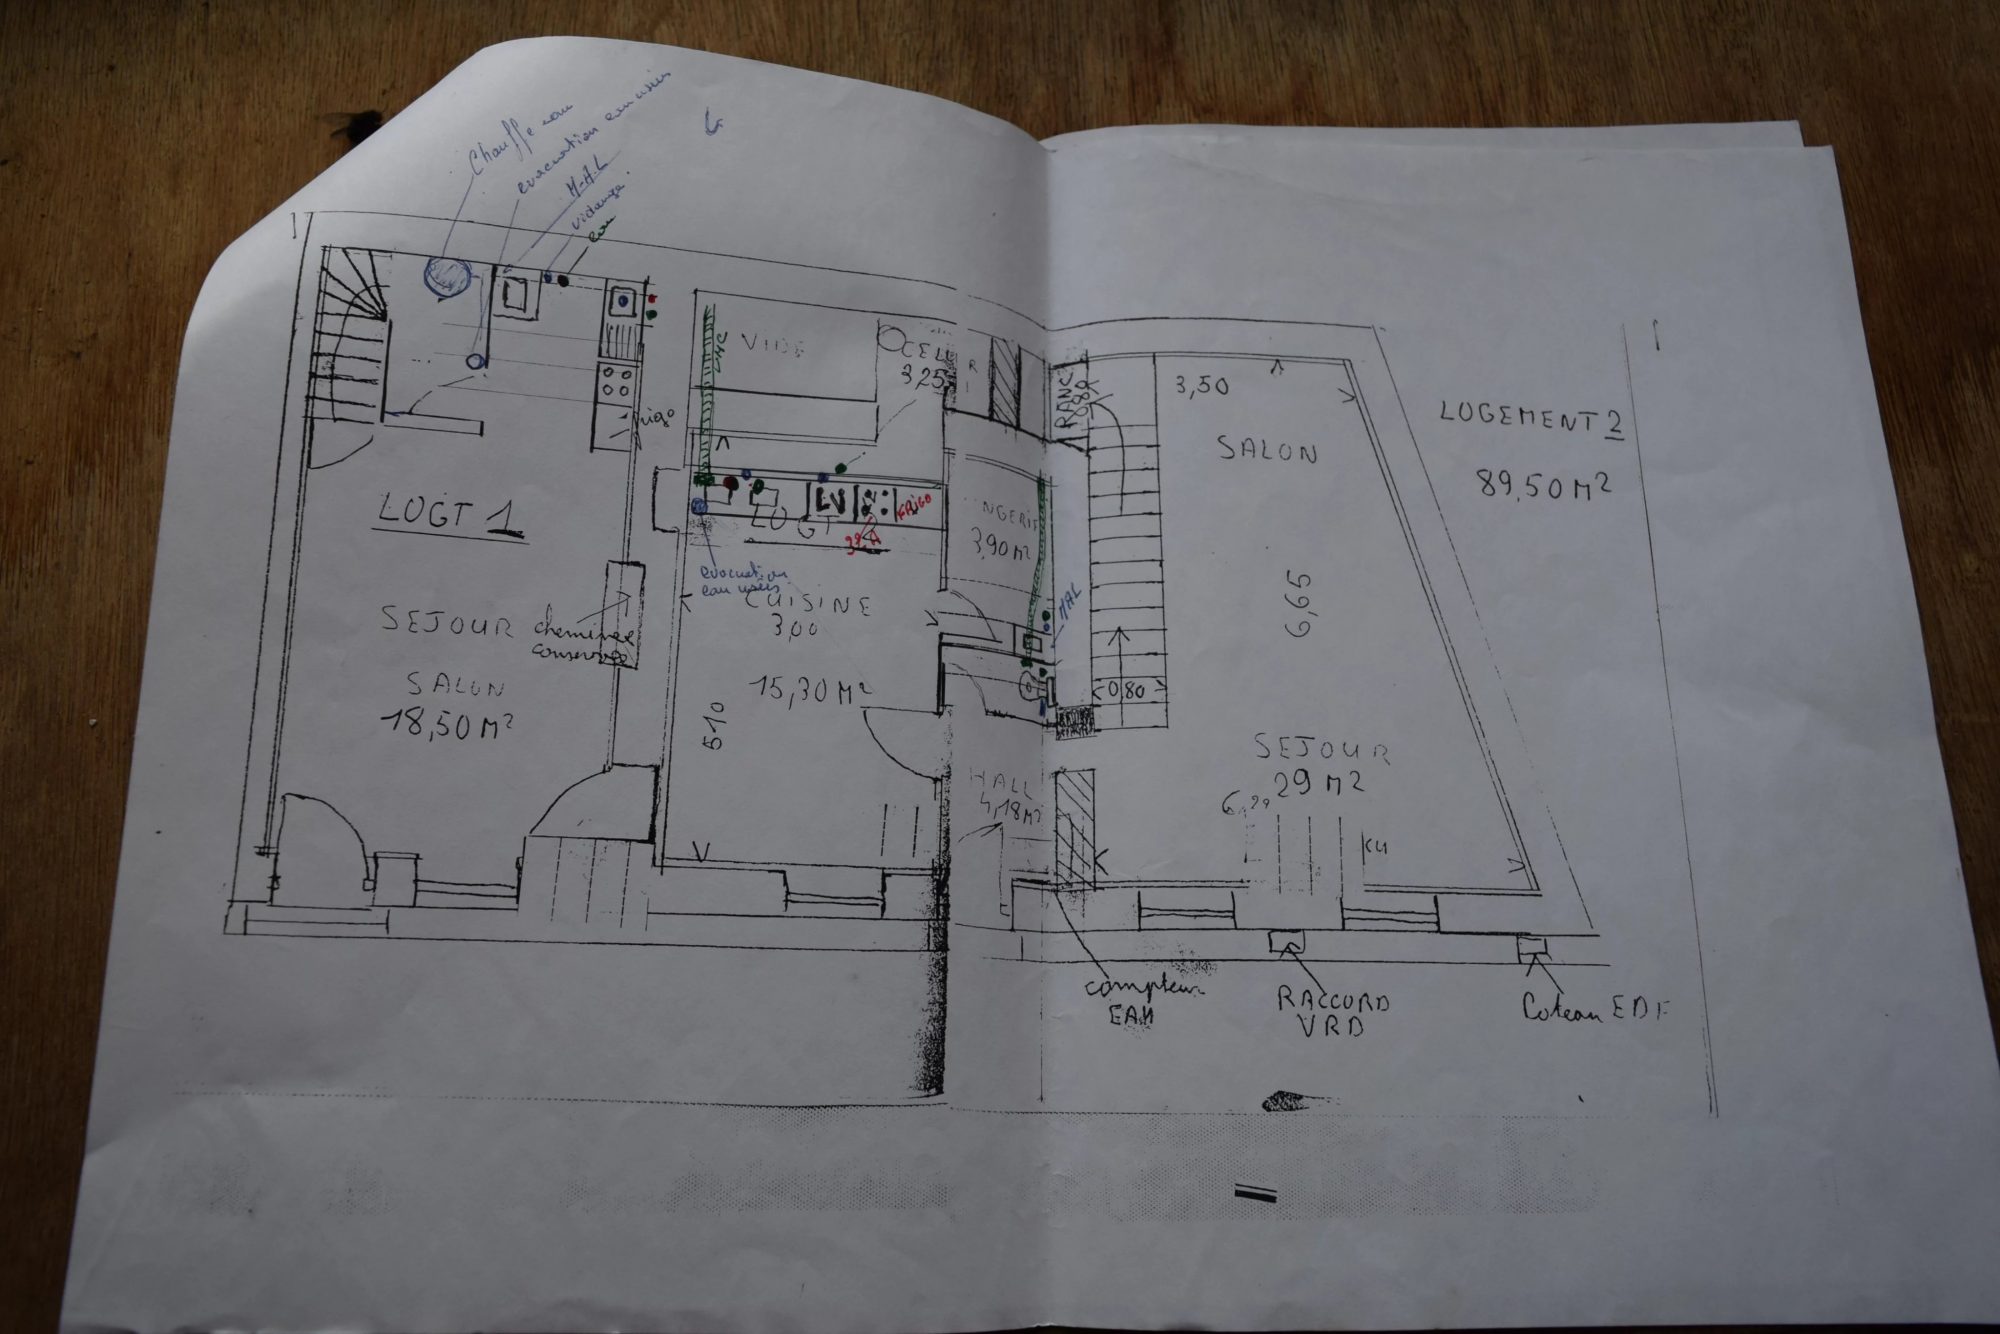 Chauffe eau
evacuation eau usées
M-A-L
vidange
eau
VIDE
CELL
3,25
3,50
SALON
LOGEMENT 2
89,50 M²
LOGT 1
LV
FRIGO
LOGT 2
3,90 M²
evacuation
eau usées
MAL
6,65
SEJOUR
cheminée
conservée
SALON
18,50 M²
CUISINE
3,00
15,30 M²
510
0,80
SEJOUR
29 M²
HALL
4,18 M²
compteur
EAU
RACCORD
VRD
Coteau EDF